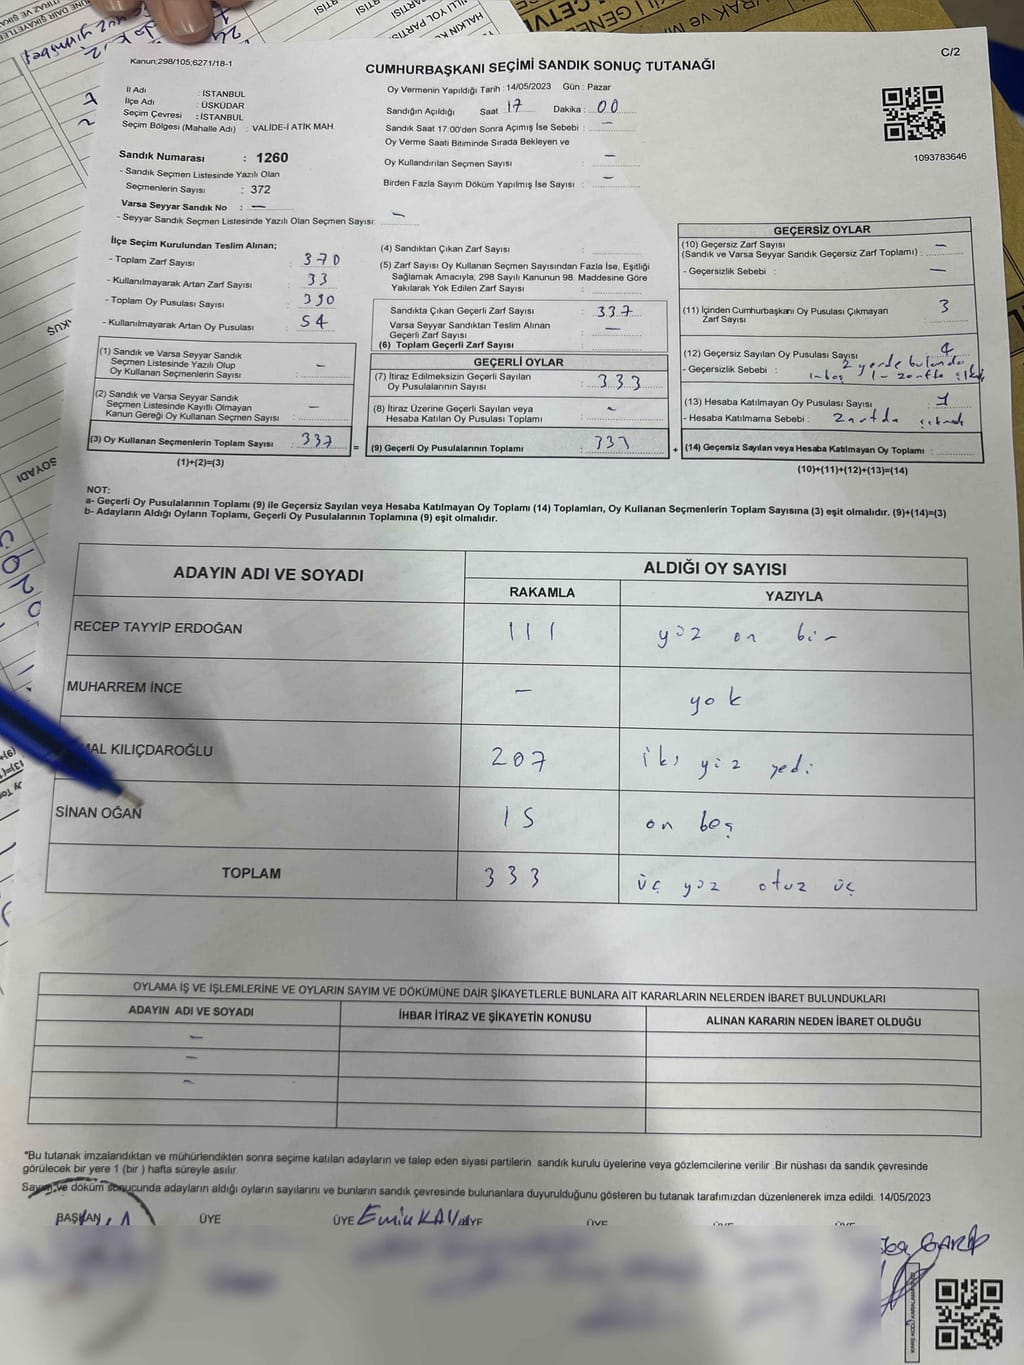 Kanun;298/105;6271/18-1
C/2
CUMHURBAŞKANI SEÇİMİ SANDIK SONUÇ TUTANAĞI
İl Adı : İSTANBUL
İlçe Adı : ÜSKÜDAR
Seçim Çevresi : İSTANBUL
Seçim Bölgesi (Mahalle Adı) : VALİDE-İ ATİK MAH.
Sandık Numarası : 1260
- Sandık Seçmen Listesinde Yazılı Olan
Seçmenlerin Sayısı : 372
Varsa Seyyar Sandık No : —
- Seyyar Sandık Seçmen Listesinde Yazılı Olan Seçmen Sayısı: —
Oy Vermenin Yapıldığı Tarih : 14/05/2023 Gün : Pazar
Sandığın Açıldığı Saat : 17 Dakika : 00
Sandık Saat 17:00'den Sonra Açımış İse Sebebi : —
Oy Verme Saati Bitiminde Sırada Bekleyen ve
Oy Kullandırılan Seçmen Sayısı : —
Birden Fazla Sayım Döküm Yapılmış İse Sayısı : —
1093783646
İlçe Seçim Kurulundan Teslim Alınan;
- Toplam Zarf Sayısı : 370
- Kullanılmayarak Artan Zarf Sayısı : 33
- Toplam Oy Pusulası Sayısı : 390
- Kullanılmayarak Artan Oy Pusulası : 54
(1) Sandık ve Varsa Seyyar Sandık
Seçmen Listesinde Yazılı Olup
Oy Kullanan Seçmenlerin Sayısı : —
(2) Sandık ve Varsa Seyyar Sandık
Seçmen Listesinde Kayıtlı Olmayan
Kanun Gereği Oy Kullanan Seçmen Sayısı : —
(3) Oy Kullanan Seçmenlerin Toplam Sayısı : 337 =
(1)+(2)=(3)
(4) Sandıktan Çıkan Zarf Sayısı :
(5) Zarf Sayısı Oy Kullanan Seçmen Sayısından Fazla İse, Eşitliği
Sağlamak Amacıyla; 298 Sayılı Kanunun 98. Maddesine Göre
Yakılarak Yok Edilen Zarf Sayısı :
Sandıkta Çıkan Geçerli Zarf Sayısı : 337
Varsa Seyyar Sandıktan Teslim Alınan
Geçerli Zarf Sayısı : —
(6) Toplam Geçerli Zarf Sayısı :
GEÇERLİ OYLAR
(7) İtiraz Edilmeksizin Geçerli Sayılan
Oy Pusulalarının Sayısı : 333
(8) İtiraz Üzerine Geçerli Sayılan veya
Hesaba Katılan Oy Pusulası Toplamı : -
(9) Geçerli Oy Pusulalarının Toplamı : 333 +
GEÇERSİZ OYLAR
(10) Geçersiz Zarf Sayısı
(Sandık ve Varsa Seyyar Sandık Geçersiz Zarf Toplamı) : —
- Geçersizlik Sebebi : —
(11) İçinden Cumhurbaşkanı Oy Pusulası Çıkmayan
Zarf Sayısı : 3
(12) Geçersiz Sayılan Oy Pusulası Sayısı :
- Geçersizlik Sebebi : 2 yerde
(13) Hesaba Katılmayan Oy Pusulası Sayısı : 1
- Hesaba Katılmama Sebebi :
(14) Geçersiz Sayılan veya Hesaba Katılmayan Oy Toplamı :
(10)+(11)+(12)+(13)=(14)
NOT:
a- Geçerli Oy Pusulalarının Toplamı (9) ile Geçersiz Sayılan veya Hesaba Katılmayan Oy Toplamı (14) Toplamları, Oy Kullanan Seçmenlerin Toplam Sayısına (3) eşit olmalıdır. (9)+(14)=(3)
b- Adayların Aldığı Oyların Toplamı, Geçerli Oy Pusulalarının Toplamına (9) eşit olmalıdır.
ADAYIN ADI VE SOYADI ALDIĞI OY SAYISI
RAKAMLA YAZIYLA
RECEP TAYYİP ERDOĞAN 111 yüz on bir
MUHARREM İNCE — yok
MAL KILIÇDAROĞLU 207 iki yüz yedi
SİNAN OĞAN 15 on beş
TOPLAM 333 üç yüz otuz üç
OYLAMA İŞ VE İŞLEMLERİNE VE OYLARIN SAYIM VE DÖKÜMÜNE DAİR ŞİKAYETLERLE BUNLARA AİT KARARLARIN NELERDEN İBARET BULUNDUKLARI
ADAYIN ADI VE SOYADI İHBAR İTİRAZ VE ŞİKAYETİN KONUSU ALINAN KARARIN NEDEN İBARET OLDUĞU
—
—
—
*Bu tutanak imzalandıktan ve mühürlendikten sonra seçime katılan adayların ve talep eden siyasi partilerin sandık kurulu üyelerine veya gözlemcilerine verilir .Bir nüshası da sandık çevresinde
görülecek bir yere 1 (bir ) hafta süreyle asılır.
Sayım ve döküm sonucunda adayların aldığı oyların sayılarını ve bunların sandık çevresinde bulunanlara duyurulduğunu gösteren bu tutanak tarafımızdan düzenlenerek imza edildi. 14/05/2023
BAŞKAN ÜYE ÜYE Emin KAYA ÜYE ÜYE ÜYE ÜYE
GARİP